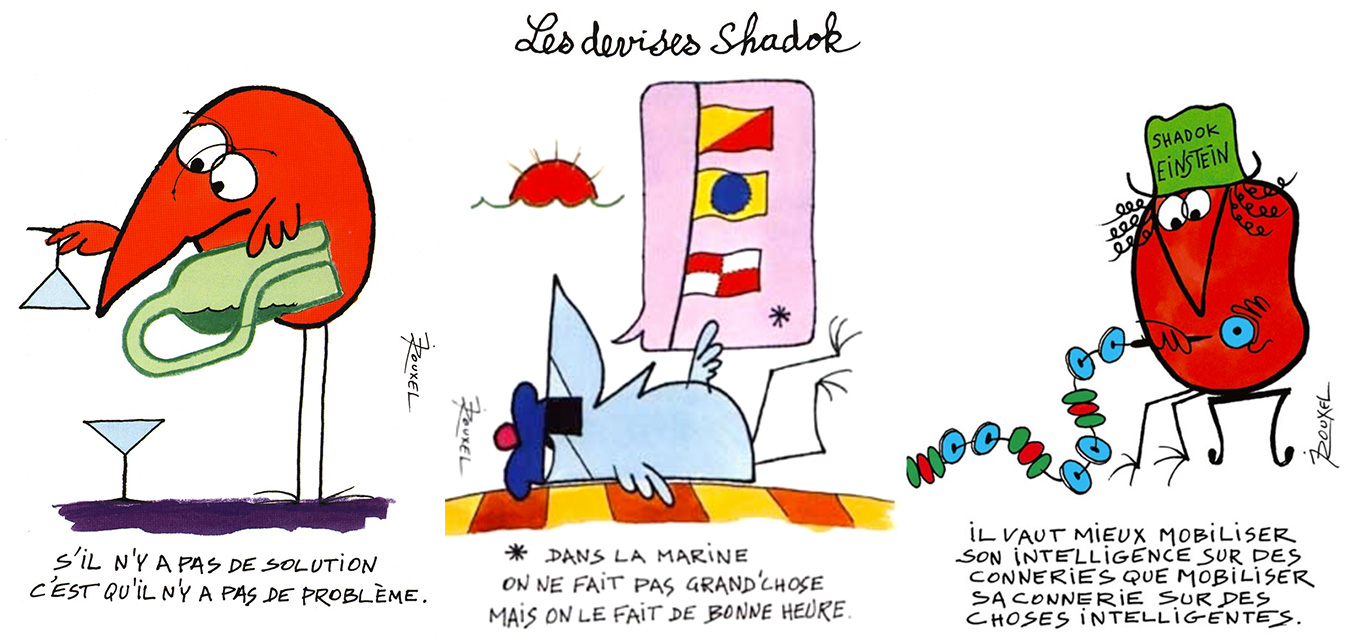 Les devises Shadok
ROUXEL
S'IL N'Y A PAS DE SOLUTION
C'EST QU'IL N'Y A PAS DE PROBLÈME.
*
ROUXEL
* DANS LA MARINE
ON NE FAIT PAS GRAND'CHOSE
MAIS ON LE FAIT DE BONNE HEURE.
SHADOK
EINSTEIN
ROUXEL
IL VAUT MIEUX MOBILISER
SON INTELLIGENCE SUR DES
CONNERIES QUE MOBILISER
SA CONNERIE SUR DES
CHOSES INTELLIGENTES.